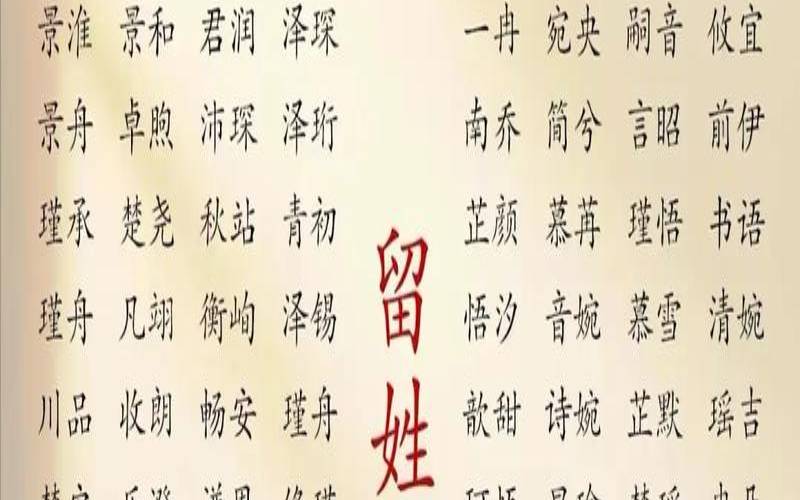 景淮 景和 君润 泽琛
景舟 卓煦 沛琛 泽珩
瑾承 楚尧 秋站 青初
瑾舟 凡翊 衡峋 泽锡
川品 收朗 畅安 瑾舟
留姓
一冉 宛央 嗣音 攸宜
南乔 简兮 言昭 前伊
芷颜 慕苒 瑾悟 书语
悟汐 音婉 慕雪 清婉
歆甜 诗婉 芷默 瑶吉